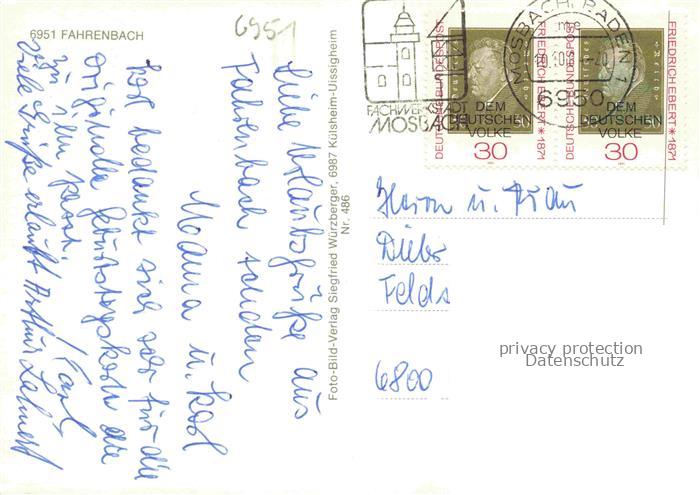 6951
6951 FAHRENBACH
Liebe Urlaubsgrüße aus
Fahrenbach senden
Mama u. Karl
Karl bedankt sich sehr für die
Geburtstagskarte die
zu ihm passt.
Karl
Viele Grüße erlaubt Arthur
Foto-Bild-Verlag Siegfried Würzberger, 6987 Külsheim-Uissigheim
Nr. 486
FACHWERKSTADT
MOSBACH
MOSBACH, BADEN 1
6950
DEUTSCHE BUNDESPOST
FRIEDRICH EBERT * 1871
DEM
DEUTSCHEN
VOLKE
30
DEUTSCHE BUNDESPOST
FRIEDRICH EBERT * 1871
DEM
DEUTSCHEN
VOLKE
30
Herrn u. Frau
Dieter
Felds
6800
privacy protection
Datenschutz